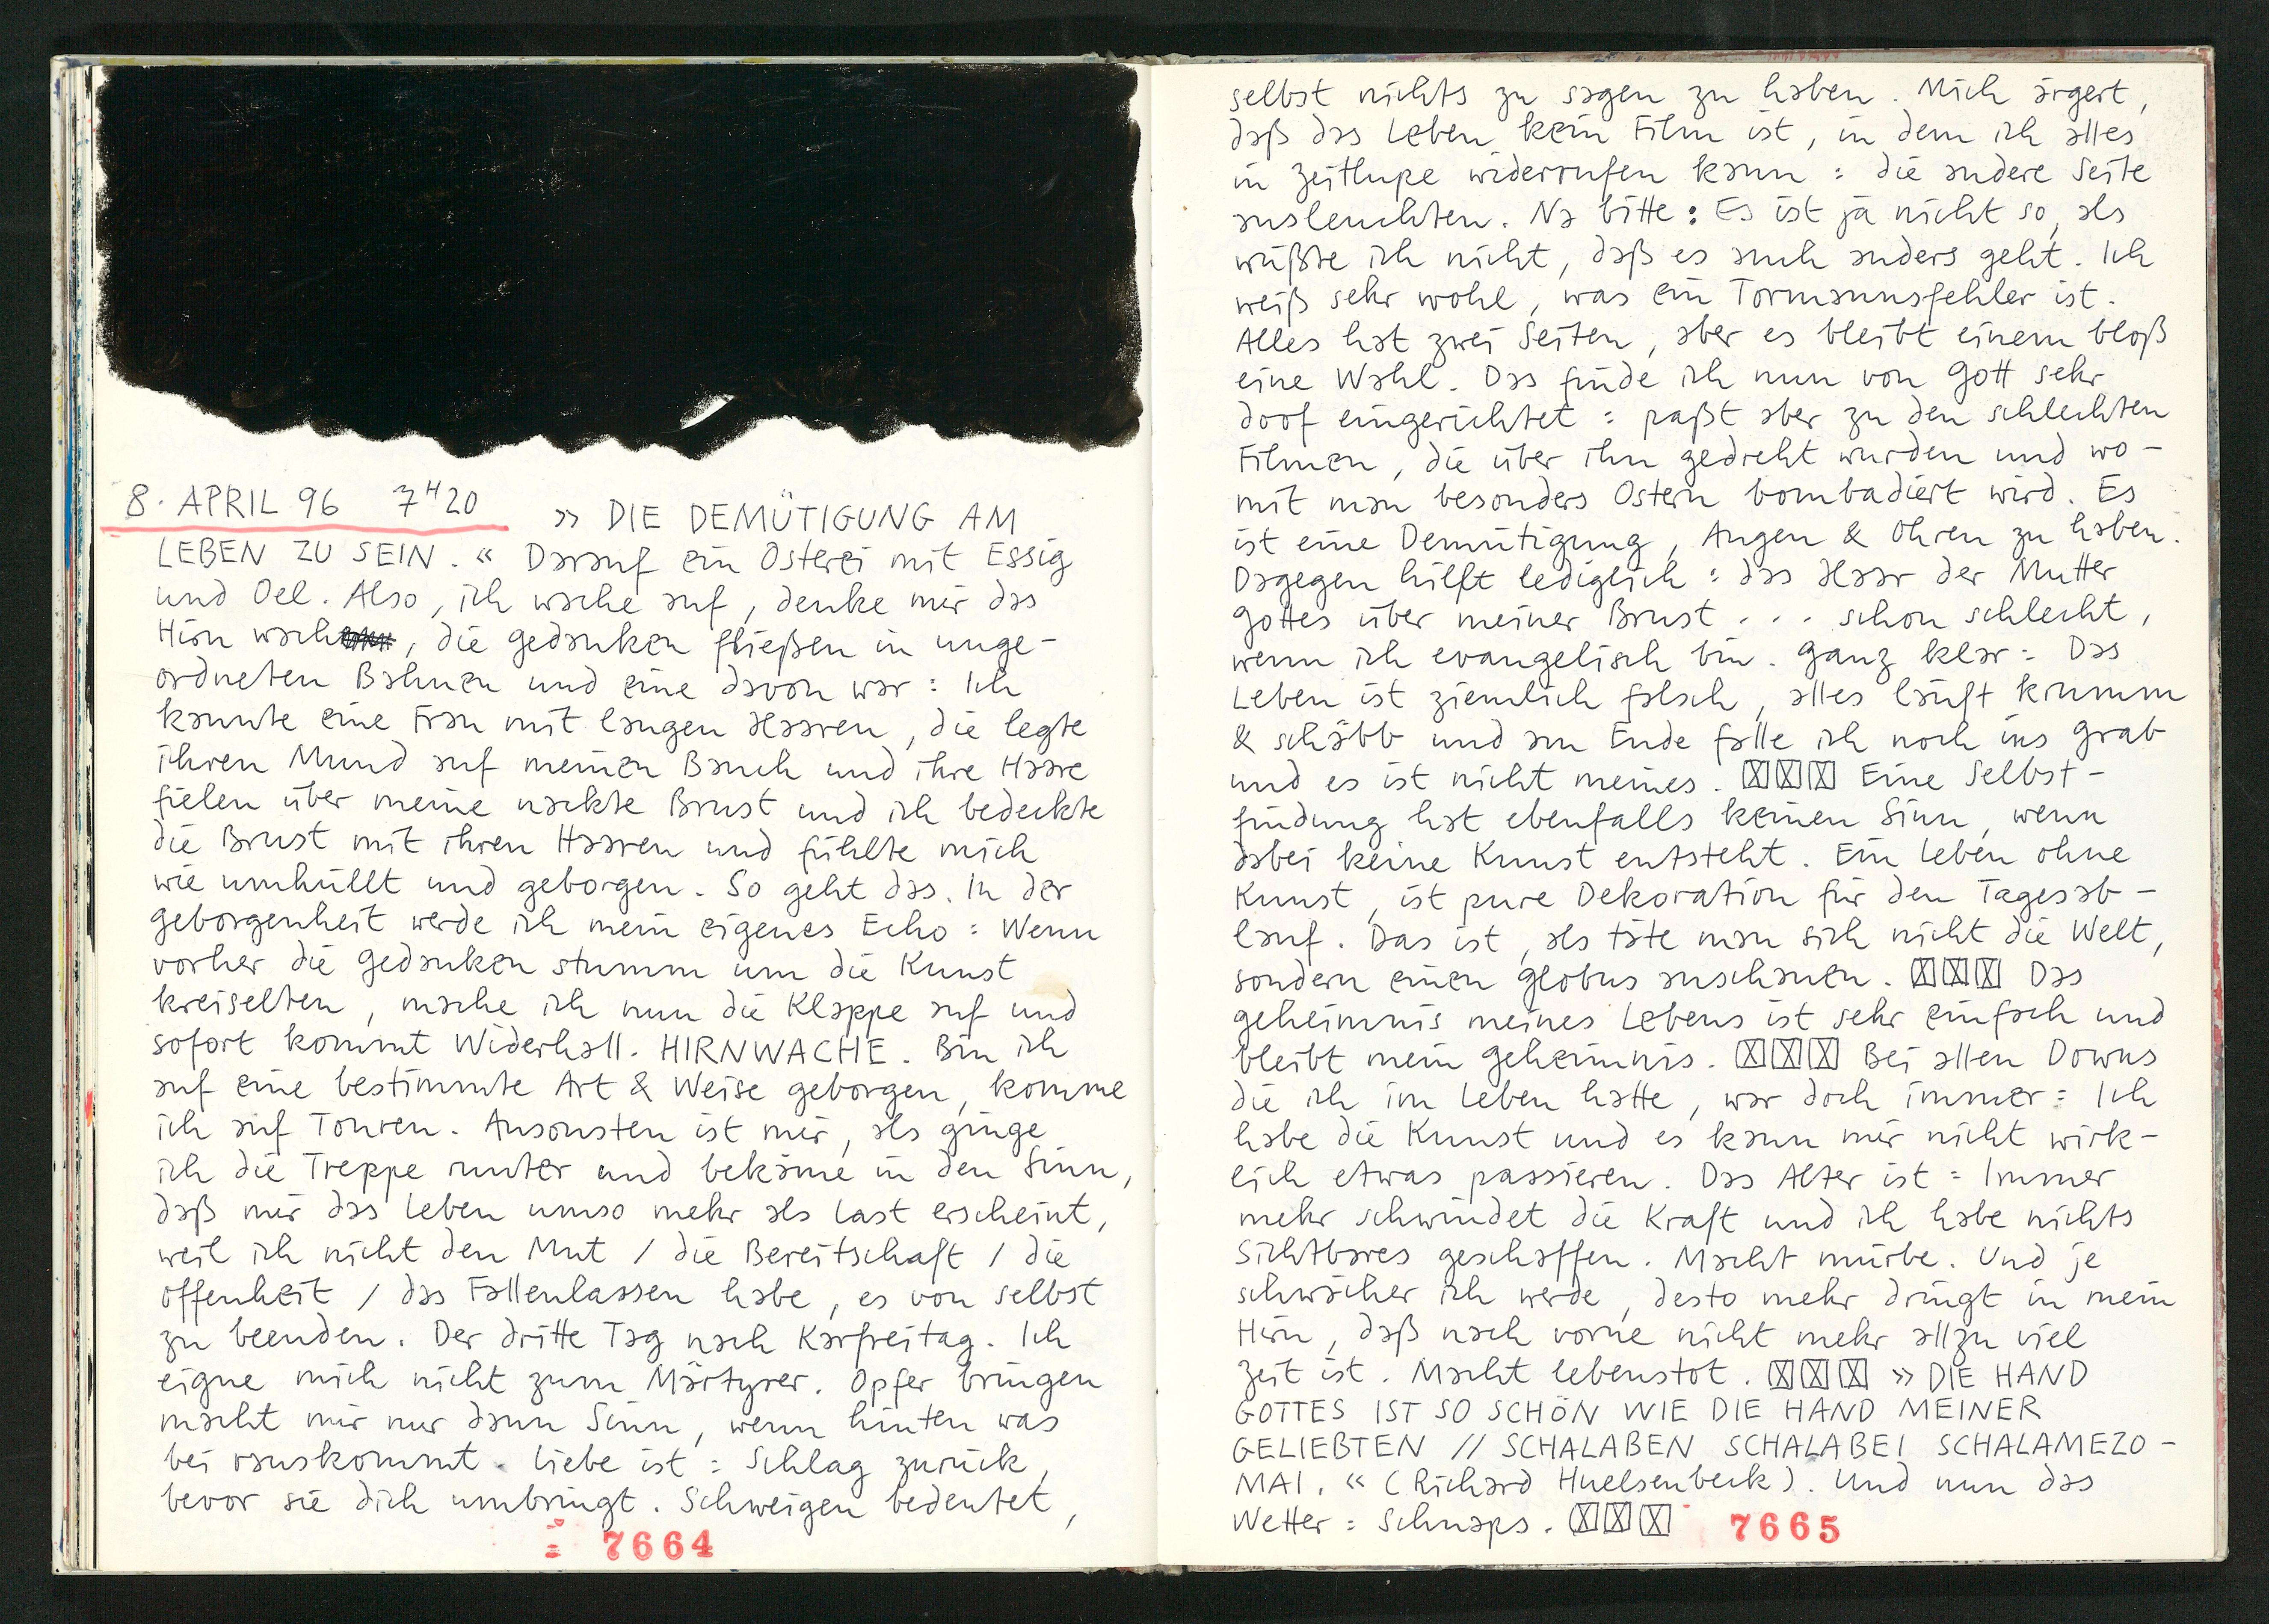 8. APRIL 96 7ᴴ20 » DIE DEMÜTIGUNG AM
LEBEN ZU SEIN. « Darauf ein Osterei mit Essig
und Oel. Also, ich wache auf, denke mir das
Hirn wach, die Gedanken fließen in unge-
ordneten Bahnen und eine davon war: Ich
kannte eine Frau mit langen Haaren, die legte
ihren Mund auf meinen Bauch und ihre Haare
fielen über meine nackte Brust und ich bedeckte
die Brust mit ihren Haaren und fühlte mich
wie umhüllt und geborgen. So geht das. In der
Geborgenheit werde ich mein eigenes Echo: Wenn
vorher die Gedanken stumm um die Kunst
kreiselten, mache ich nun die Klappe auf und
sofort kommt Widerhall. HIRNWACHE. Bin ich
auf eine bestimmte Art & Weise geborgen, komme
ich auf Touren. Ansonsten ist mir, als ginge
ich die Treppe runter und bekäme in den Sinn,
daß mir das Leben umso mehr als Last erscheint,
weil ich nicht den Mut / die Bereitschaft / die
Offenheit / das Fallenlassen habe, es von selbst
zu beenden. Der dritte Tag nach Karfreitag. Ich
eigne mich nicht zum Märtyrer. Opfer bringen
macht mir nur dann Sinn, wenn hinten was
bei rauskommt. Liebe ist: Schlag zurück,
bevor sie dich umbringt. Schweigen bedeutet,
7664
selbst nichts zu sagen zu haben. Mich ärgert,
daß das Leben kein Film ist, in dem ich alles
in Zeitlupe widerrufen kann: die andere Seite
ausleuchten. Na bitte: Es ist ja nicht so, als
wüßte ich nicht, daß es auch anders geht. Ich
weiß sehr wohl, was ein Tormannsfehler ist.
Alles hat zwei Seiten, aber es bleibt einem bloß
eine Wahl. Das finde ich nun von Gott sehr
doof eingerichtet: paßt aber zu den schlechten
Filmen, die über ihn gedreht wurden und wo-
mit man besonders Ostern bombadiert wird. Es
ist eine Demütigung, Augen & Ohren zu haben.
Dagegen hilft lediglich: das Haar der Mutter
Gottes über meiner Brust ... schon schlecht,
wenn ich evangelisch bin. Ganz klar: Das
Leben ist ziemlich falsch, alles läuft krumm
& schäbb und am Ende falle ich noch ins Grab
und es ist nicht meines. ☒☒☒ Eine Selbst-
findung hat ebenfalls keinen Sinn, wenn
dabei keine Kunst entsteht. Ein Leben ohne
Kunst, ist pure Dekoration für den Tagesab-
lauf. Das ist, als täte man sich nicht die Welt,
sondern einen Globus anschauen. ☒☒☒ Das
Geheimnis meines Lebens ist sehr einfach und
bleibt mein Geheimnis. ☒☒☒ Bei allen Downs
die ich im Leben hatte, war doch immer: Ich
habe die Kunst und es kann mir nicht wirk-
lich etwas passieren. Das Alter ist: Immer
mehr schwindet die Kraft und ich habe nichts
Sichtbares geschaffen. Macht mürbe. Und je
schwächer ich werde, desto mehr dringt in mein
Hirn, daß nach vorne nicht mehr allzu viel
Zeit ist. Macht lebenstot. ☒☒☒ » DIE HAND
GOTTES IST SO SCHÖN WIE DIE HAND MEINER
GELIEBTEN // SCHALABEN SCHALABEI SCHALAMEZO-
MAI. « (Richard Huelsenbeck). Und nun das
Wetter: Schnaps. ☒☒☒ 7665